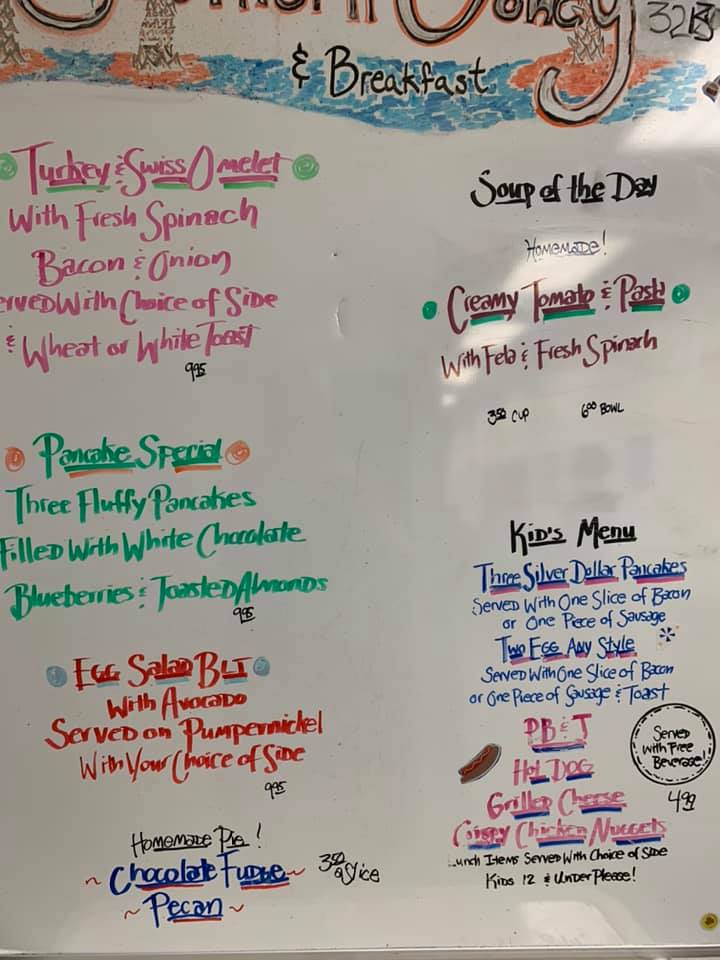 Coney
323
& Breakfast
Turkey & Swiss Omelet
With Fresh Spinach
Bacon & Onion
erved With Choice of Side
& Wheat or White Toast
9.95
Pancake Special
Three Fluffy Pancakes
Filled With White Chocolate
Blueberries & Toasted Almonds
9.95
Egg Salad BLT
With Avocado
Served on Pumpernickel
With Your Choice of Side
9.95
Homemade Pie!
~ Chocolate Fudge ~
~ Pecan ~
3.50 a Slice
Soup of the Day
Homemade!
Creamy Tomato & Pasta
With Feta & Fresh Spinach
3.50 Cup 6.00 Bowl
Kid's Menu
Three Silver Dollar Pancakes
Served With One Slice of Bacon
or One Piece of Sausage
Two Egg Any Style
Served With One Slice of Bacon
or One Piece of Sausage & Toast
PB & J
Hot Dog
Grilled Cheese
Crispy Chicken Nuggets
Served
With Free
Beverage!
4.99
Lunch Items Served With Choice of Side
Kids 12 & Under Please!